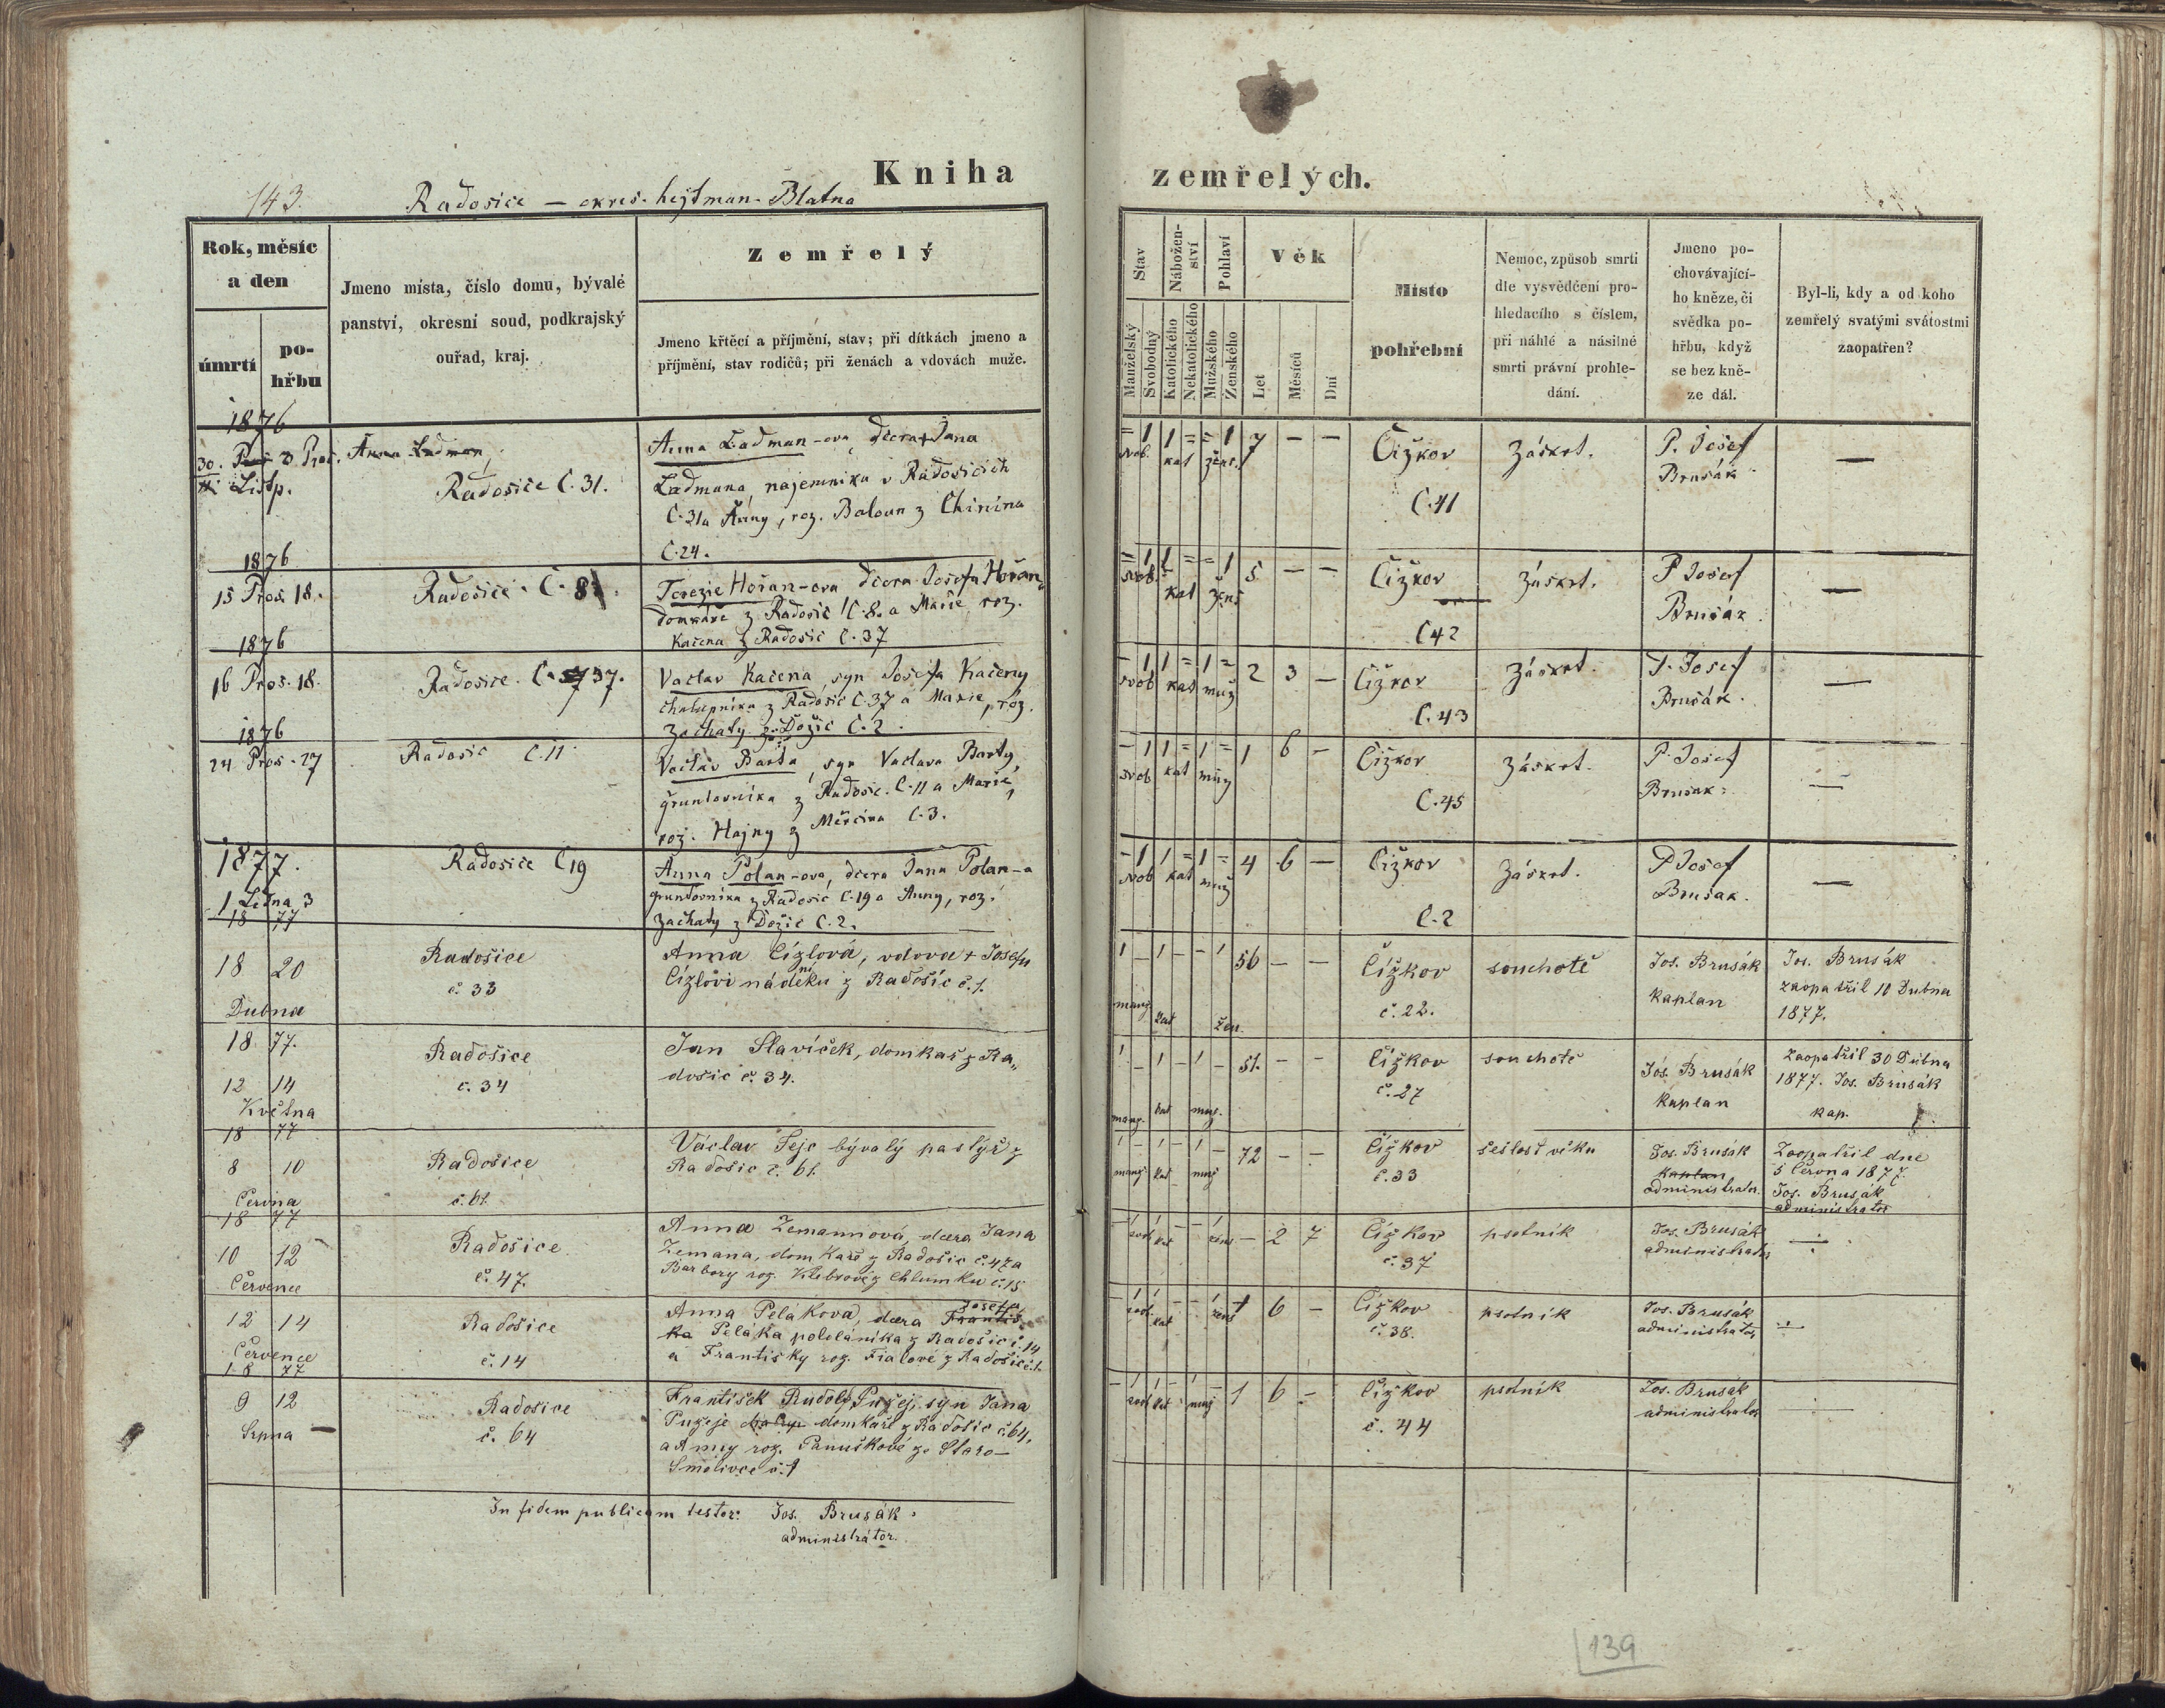 143.
Radosice – okres. hejtman. Blatna
Kniha
zemřelých.
Rok, měsíc
a den
úmrtí
po-
hřbu
Jmeno místa, číslo domu, bývalé
panství, okresní soud, podkrajský
ouřad, kraj.
Zemřelý
Jmeno křtěcí a příjmění, stav; při dítkách jmeno a
příjmění, stav rodičů; při ženách a vdovách muže.
Stav
Manželský
Svobodný
Nábožen-
ství
Katolického
Nekatolického
Pohlaví
Mužského
Ženského
Věk
Let
Měsíců
Dní
Místo
pohřební
Nemoc, způsob smrti
dle vysvědčení pro-
hledacího s číslem,
při náhlé a násilné
smrti právní prohle-
dání.
Jmeno po-
chovávající-
ho kněze, či
svědka po-
hřbu, když
se bez kně-
ze dál.
Byl-li, kdy a od koho
zemřelý svatými svátostmi
zaopatřen?
1876
30. Listp.
Radosice C. 31.
Anna Ladman-ova dcera + Jana
Ladmana, najemnika v Radosicich
C. 31 a Anny, roz. Baloun z Chinina
C. 24.
= 1 1 = = 1 7 – –
svob. kat žens.
Čižkov
C. 41
Záskrt.
P. Josef
Brusák
—
1876
15 Pros. 18.
Radosice. C. 8
Terezie Hořan-ova dcera Josefa Hořan
domkáře z Radosic C. 8. a Marie, roz.
Kačena z Radosic C. 37
= 1 1 = = 1 5 – –
svob. kat žens
Čižkov
C 42
Záskrt.
P Josef
Brusák.
—
1876
16 Pros. 18.
Radosice. C. 37.
Vaclav Kačena, syn Josefa Kačeny
chalupnika z Radosic C. 37 a Marie, roz.
Zachaty z Dožic C. 2.
– 1 1 = 1 = 2 3 –
svob kat muž
Čižkov
C. 43
Záskrt.
P. Josef
Brusák.
—
1876
24 Pros. 27
Radosic C. 11
Vaclav Barta, syn Vaclava Barty,
gruntovnika z Radosic. C. 11 a Marie,
roz. Hajny z Měrčina C. 3.
– 1 1 = 1 = 1 6 –
svob kat muž
Čižkov
C. 45
Záskrt.
P. Josef
Brusak.
—
1877.
1 Ledna 3
Radosice C 19
Anna Polan-ova, dcera Jana Polan-a
gruntovnika z Radosic C. 19 a Anny, roz.
Zachaty z Dožic C. 2.
– 1 1 = 1 = 4 6 –
svob kat muž
Čižkov
C. 2
Záskrt.
P Josef
Brusak.
—
18 77
18 20
Dubna
Radošice
č. 33
Anna Cízlová, vdova + Josefu
Cízlovi nádeníku z Radošic č. 1.
1 – 1 – – 1 56 – –
manž kat žen.
Čížkov
č. 22.
souchotě
Jos. Brusák
kaplan
Jos. Brusák
zaopatřil 10 Dubna
1877.
18 77.
12 14
Května
Radošice
č. 34
Jan Slavíček, domkař z Ra„
došic č. 34.
1 – 1 – 1 – 51. – –
manž. kat muž.
Čížkov
č. 27
souchotě
Jos. Brusák
kaplan
zaopatřil 30 Dubna
1877. Jos. Brusák
kap.
18 77
8 10
Června
Radošice
č. 61.
Václav Fejc bývalý pastýř z
Radošic č. 61.
1 – 1 – 1 – 72 – –
manž kat muž
Čížkov
č. 33
sešlost věku
Jos. Brusák
kaplan
administrator.
Zaopatřil dne
5 Června 1877.
Jos. Brusák
administrator
18 77
10 12
Července
Radošice
č. 47.
Anna Zemannová, dcera Jana
Zemana, domkaře z Radošic č. 47 a
Barbory roz. Klebrové z Chlumku č. 15
– 1 1 – – 1 – 2 7
svob kat žens
Čížkov
č. 37
psotník
Jos. Brusák
administrator
—
12 14
Července
Radošice
č. 14
Anna Pelákova, dcera Josefa
Peláka pololáníka z Radošic č. 14
a Františky roz. Fialové z Radošic č. 1.
– 1 1 – – 1 1 6 –
svob. kat žens
Čížkov
č. 38.
psotník
Jos. Brusák
administrator
—
18 77
9 12
Srpna —
Radošice
č. 64
František Rudolf Pužej, syn Jana
Pužeje domkaře z Radošic č. 64,
a Anny roz. Panuškové ze Staro-
Smolivce č. 1
– 1 1 – 1 – 1 6 –
svob kat muž
Čížkov
č. 44
psotník
Jos. Brusák
administrator
—
In fidem publicam testor: Jos. Brusák.
administrátor.
139